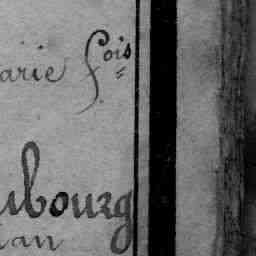 arie fois
ubourg
an